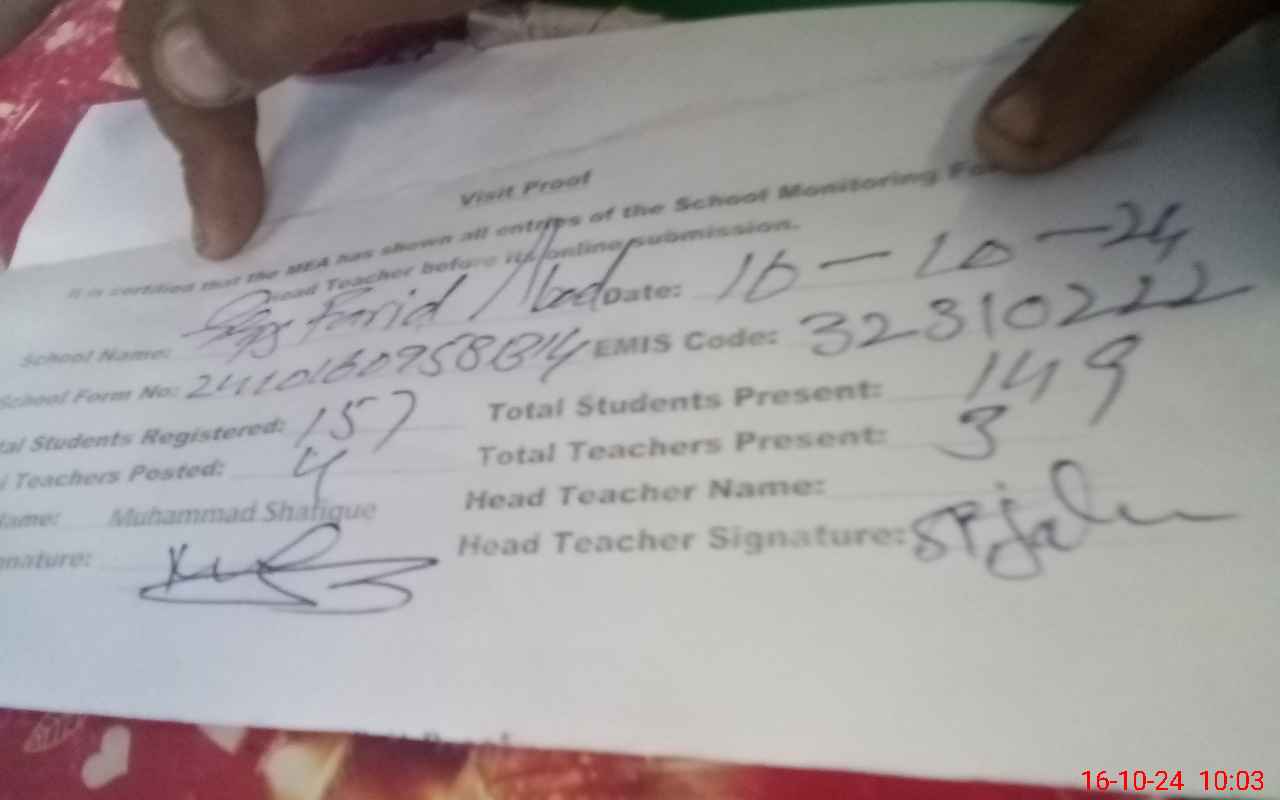 Visit Proof
It is certified that the MEA has shown all entries of the School Monitoring
Head Teacher before its online submission.
School Name: Farid Abad Date: 16-10-24
School Form No: EMIS Code: 32310222
tal Students Registered: 157 Total Students Present: 149
l Teachers Posted: 4 Total Teachers Present: 3
Name: Muhammad Shafique Head Teacher Name:
nature: Head Teacher Signature:
16-10-24 10:03